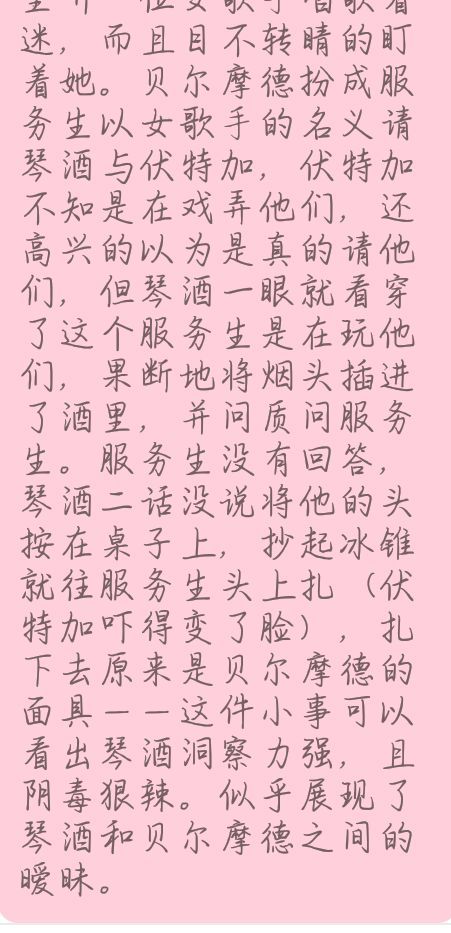 位女歌手唱歌着
迷，而且目不转睛的盯
着她。贝尔摩德扮成服
务生以女歌手的名义请
琴酒与伏特加，伏特加
不知是在戏弄他们，还
高兴的以为是真的请他
们，但琴酒一眼就看穿
了这个服务生是在玩他
们，果断地将烟头插进
了酒里，并问质问服务
生。服务生没有回答，
琴酒二话没说将他的头
按在桌子上，抄起冰锥
就往服务生头上扎（伏
特加吓得变了脸），扎
下去原来是贝尔摩德的
面具——这件小事可以
看出琴酒洞察力强，且
阴毒狠辣。似乎展现了
琴酒和贝尔摩德之间的
暧昧。